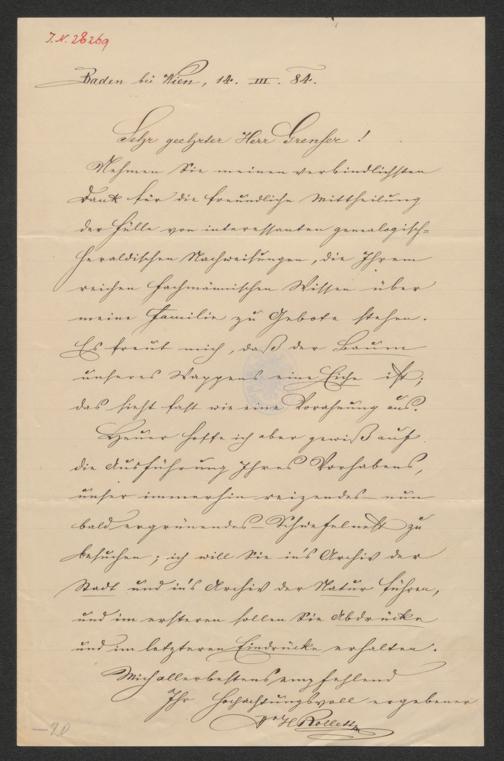 J.N. 28269
Baden bei Wien, 14. III. 84.
Sehr geehrter Herr Grenser!
Nehmen Sie meinen verbindlichsten
Dank für die freundliche Mittheilung
der Fülle von interessanten genealogisch-
heraldischen Nachweisungen, die Ihrem
reichen fachmännischen Wissen über
meine Familie zu Gebote stehen.
Es freut mich, daß der Baum
unseres Wappens eine Eiche ist;
das sieht fast wie eine Vorahnung aus.
Heuer hoffe ich aber gewiß auf
die Ausführung Ihres Vorhabens,
unser immerhin reizendes – nun
bald ergrünendes – Schwefelnest zu
besuchen; ich will Sie in's Archiv der
Stadt und in's Archiv der Natur führen,
und im ersteren sollen Sie Abdrücke
und im letzteren Eindrücke erhalten.
Mich allerbestens empfehlend
Ihr hochachtungsvoll ergebener
Dr H Rollett